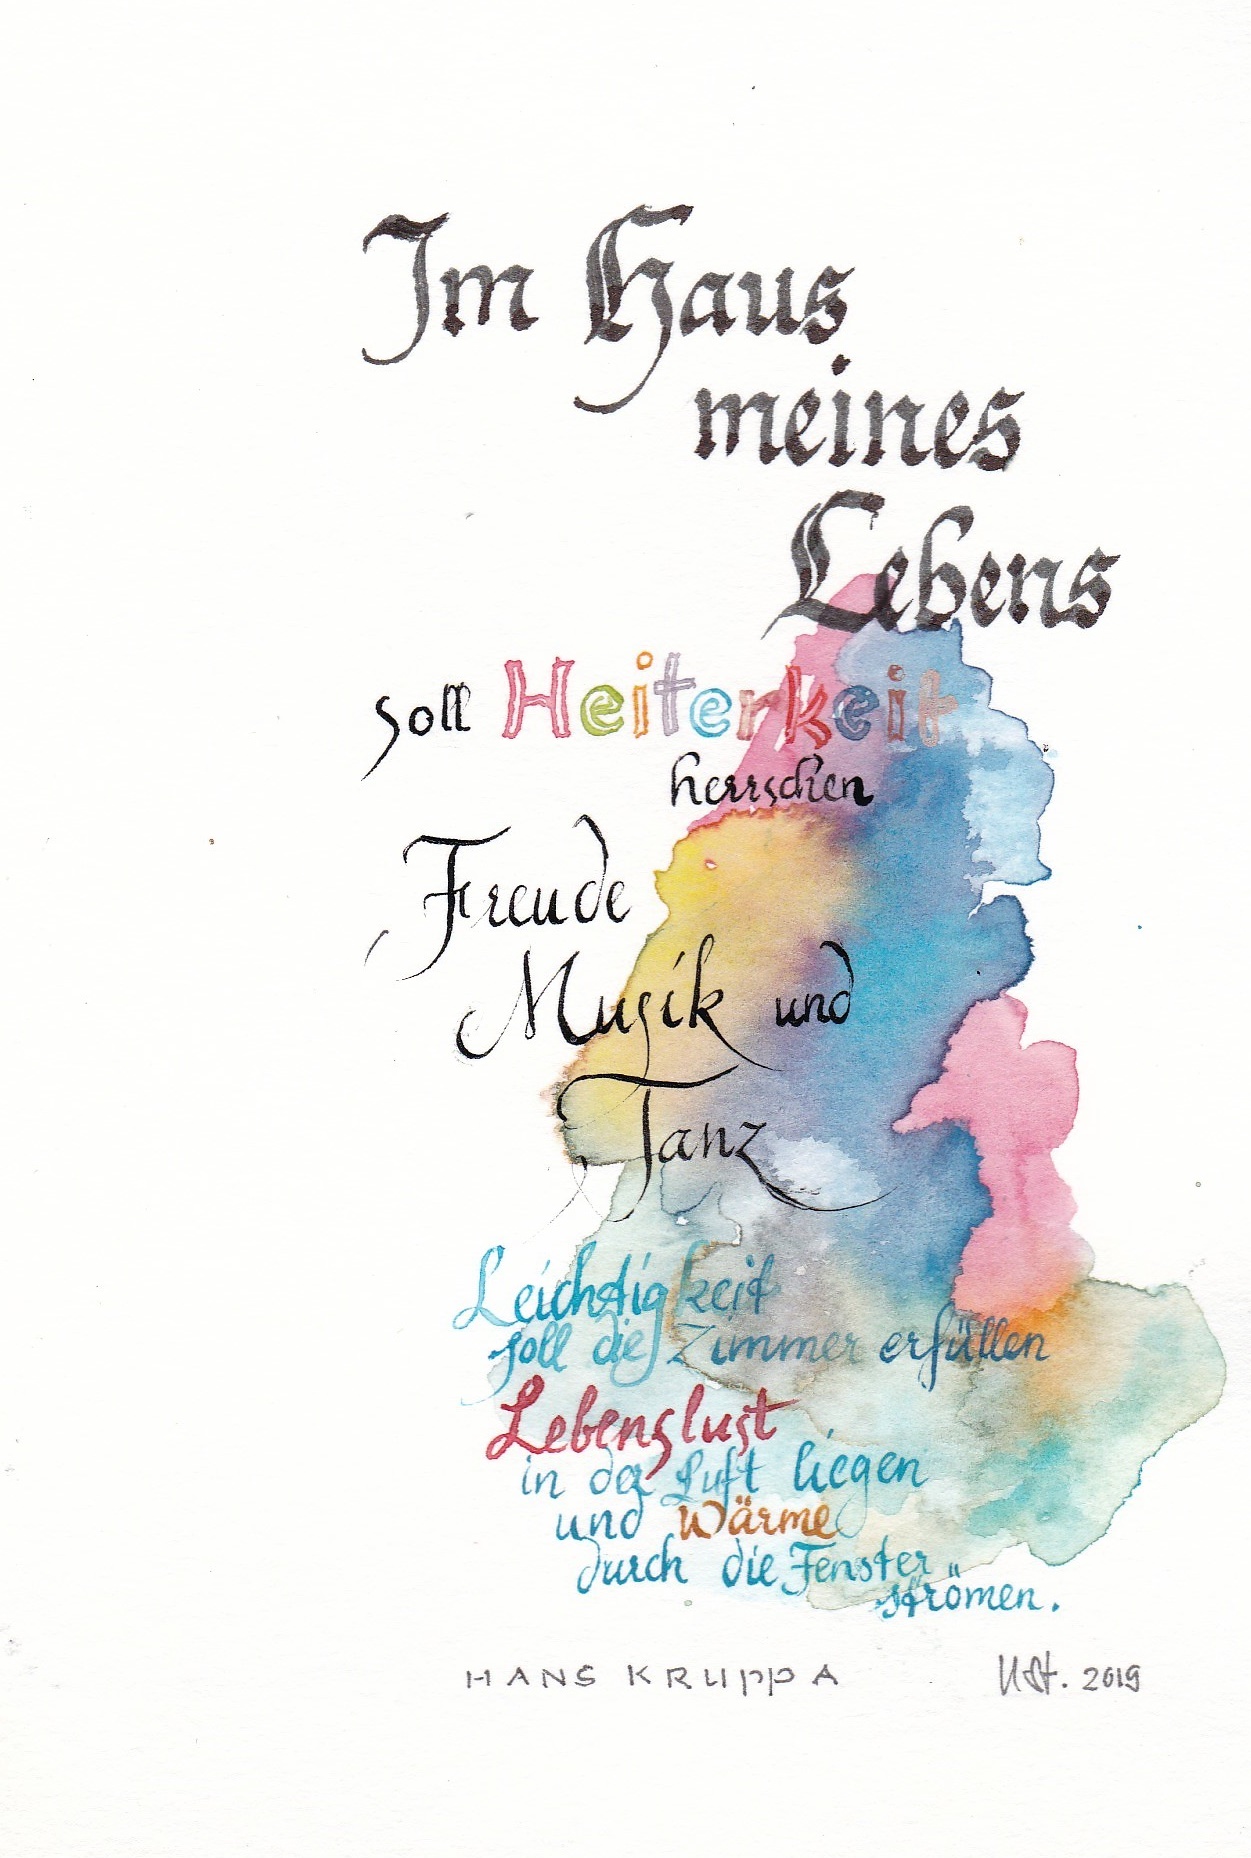 Im Haus
meines
Lebens
soll Heiterkeit
herrschen
Freude
Musik und
Tanz
Leichtigkeit
soll die Zimmer erfüllen
Lebenslust
in der Luft liegen
und Wärme
durch die Fenster
strömen.
HANS KRUPPA
USt. 2019